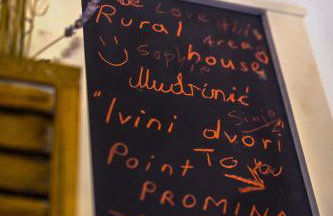 We Love this
Rural Area
Sophie house
Mudrinić
"Ivini dvori
Point To you
PROMINA